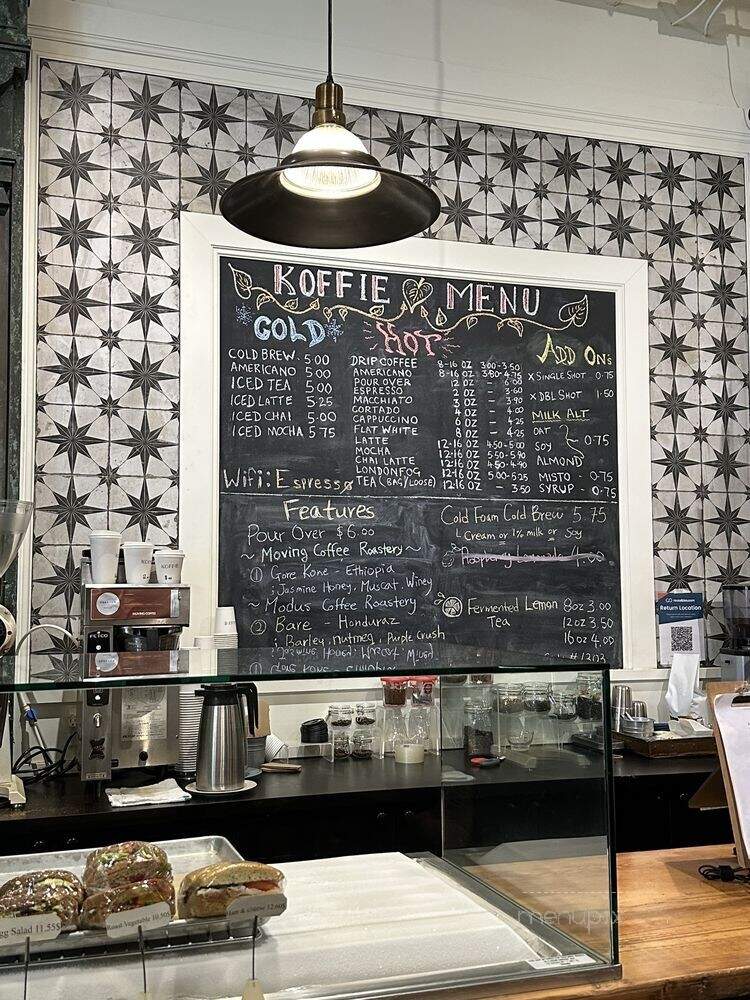 KOFFIE MENU
COLD
COLD BREW. 5.00
AMERICANO 5.00
ICED TEA 5.00
ICED LATTE 5.25
ICED CHAI 5.00
ICED MOCHA 5.75
Wifi: Espresso
HOT
DRIP COFFEE 8-16 OZ 3.00-3.50
AMERICANO 8-16 OZ 3.80-4.75
POUR OVER 12 OZ - 6.00
ESPRESSO 2 OZ - 3.60
MACCHIATO 3 OZ - 3.90
CORTADO 4 OZ - 4.00
CAPPUCCINO 6 OZ - 4.25
FLAT WHITE 8 OZ - 4.25
LATTE 12-16 OZ 4.50-5.00
MOCHA 12-16 OZ 5.50-5.90
CHAI LATTE 12-16 OZ 4.50-4.90
LONDON FOG 12-16 OZ 5.00-5.25
TEA (BAG/LOOSE) 12-16 OZ - 3.50
ADD ONs
x SINGLE SHOT 0.75
x DBL SHOT 1.50
MILK ALT
OAT
SOY 0.75
ALMOND
MISTO - 0.75
SYRUP 0.75
Features
Pour Over $6.00
~ Moving Coffee Roastery ~
① Gore Kone - Ethiopia
; Jasmine, Honey, Muscat, Winey
~ Modus Coffee Roastery
② Bare - Honduraz
; Barley, nutmeg, Purple Crush
Cold Foam Cold Brew 5.75
Cream or 1% milk or Soy
Fermented Lemon Tea
8oz 3.00
12oz 3.50
16oz 4.00
KOFFIE
MOVING COFFEE
FETCO
Return Location
gg Salad 11.55$
Roast Vegetable 10.50$
menupix